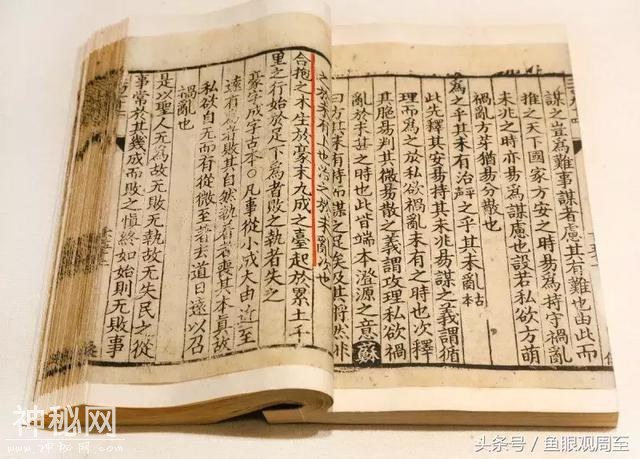 謀之豈為難事謀者慮其有難也由此而
推之天下國家方安之時易為持守禍亂
未兆之時亦易為謀慮也設若私欲方萌
禍亂方芽猶易分散也
為之乎其未有治乎其未亂
此先釋其安易持其未兆易謀之義謂循
理而為之於私欲禍亂未有之時也次釋
其脆易判其微易散之義謂攻理私欲禍
亂於未甚之時也此皆端本澄源之意蘇
曰方其未有持而謀之足矣及其將然非
之於未有也治之於未亂次也
合抱之木生於豪末九成之臺起於累土千
里之行始於足下為者敗之執者失之
豪字成字古本○凡事從小成大由近至
遠有為者敗其自然執有者喪其本真故
私欲自无而有從微至著去道日遠以召
禍亂也
是以聖人无為故无敗无執故无失民之從
事常於其幾成而敗之慎終如始則无敗事
神秘网
WWW.SHENMIW.COM
头条号 / 鱼眼观周至